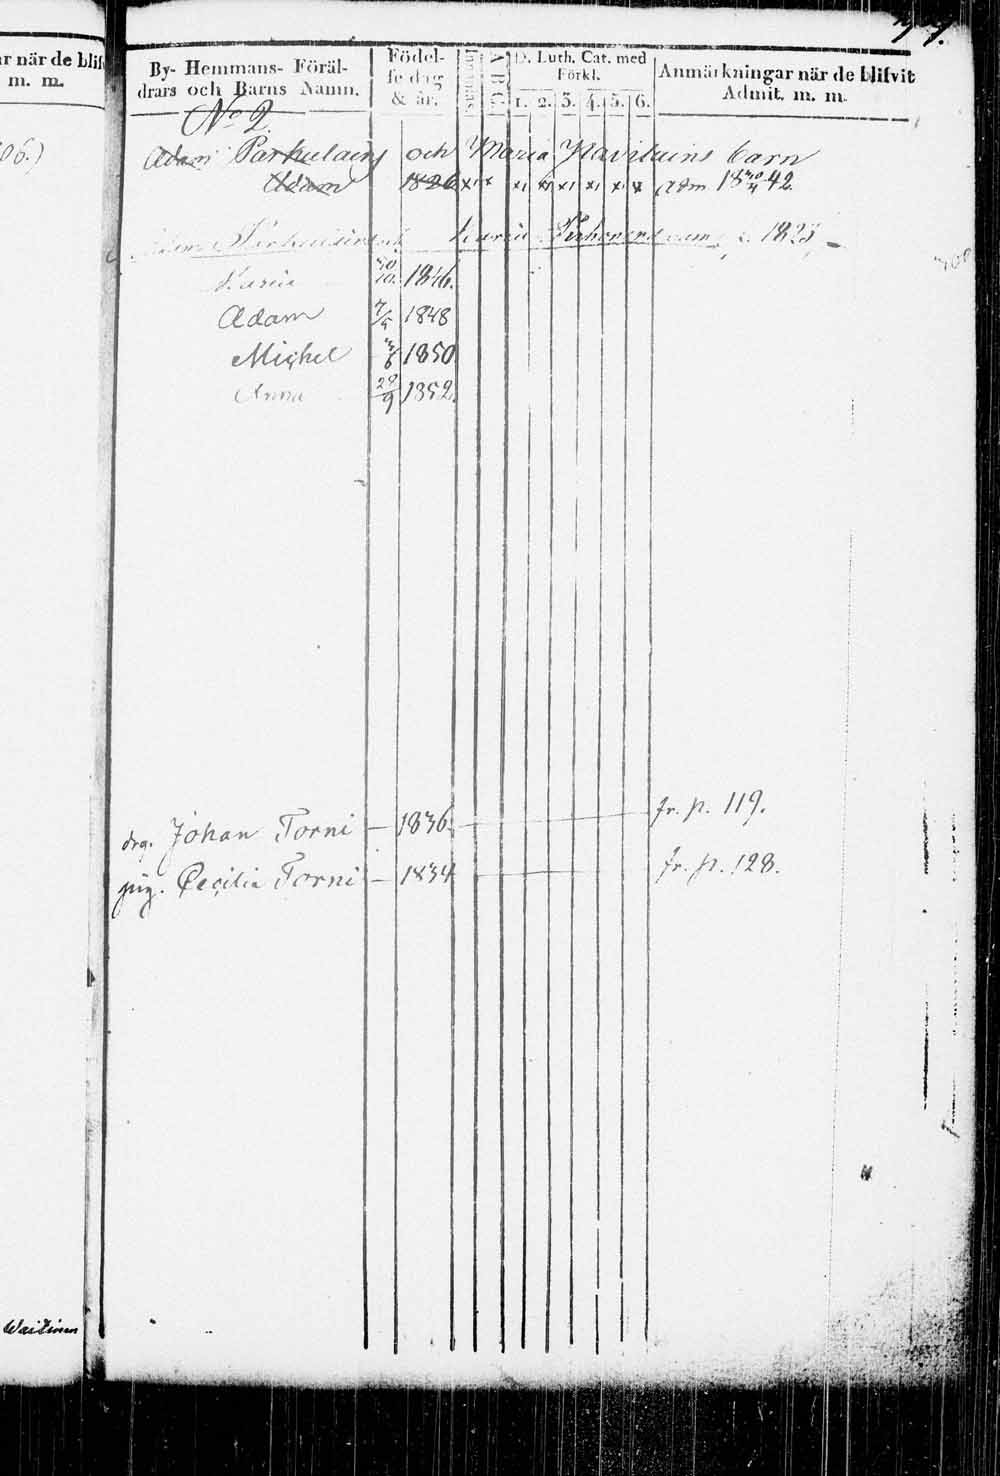 är när de blif
m. m.
06.)
Waitinen
By- Hemmans- Föräl-
drars och Barns Namn.
Födel-
se dag
& år.
Innanläs
A B C
D. Luth. Cat. med
Förkl.
1. 2. 3. 4. 5. 6.
Anmärkningar när de blifvit
Admit. m. m.
No 2.
Adam Parkulains och Maria Navilains barn
Adam 1826 x x x x x x x x adm 18 30/4 42.
Maria 1825
Maria 30/10. 1846.
Adam 7/5 1848
Michel 3/6 1850
Anna 29/9 1852.
drg. Johan Torni 1836. fr. p. 119.
pig. Cecilia Torni 1834 fr. p. 128.